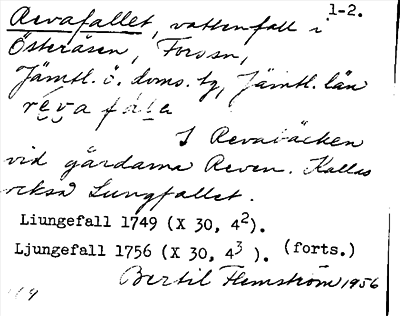 Revafallet, vattenfall i 1-2.
Österåsen, Forssn,
Jämtl. ö. doms. tg, Jämtl. län
reva fale
I Revabäcken
vid gårdarna Reven. Kallas
också Ljungfallet.
Liungefall 1749 (X 30, 4²).
Ljungefall 1756 (X 30, 4³ ). (forts.)
Bertil Flemström 1956